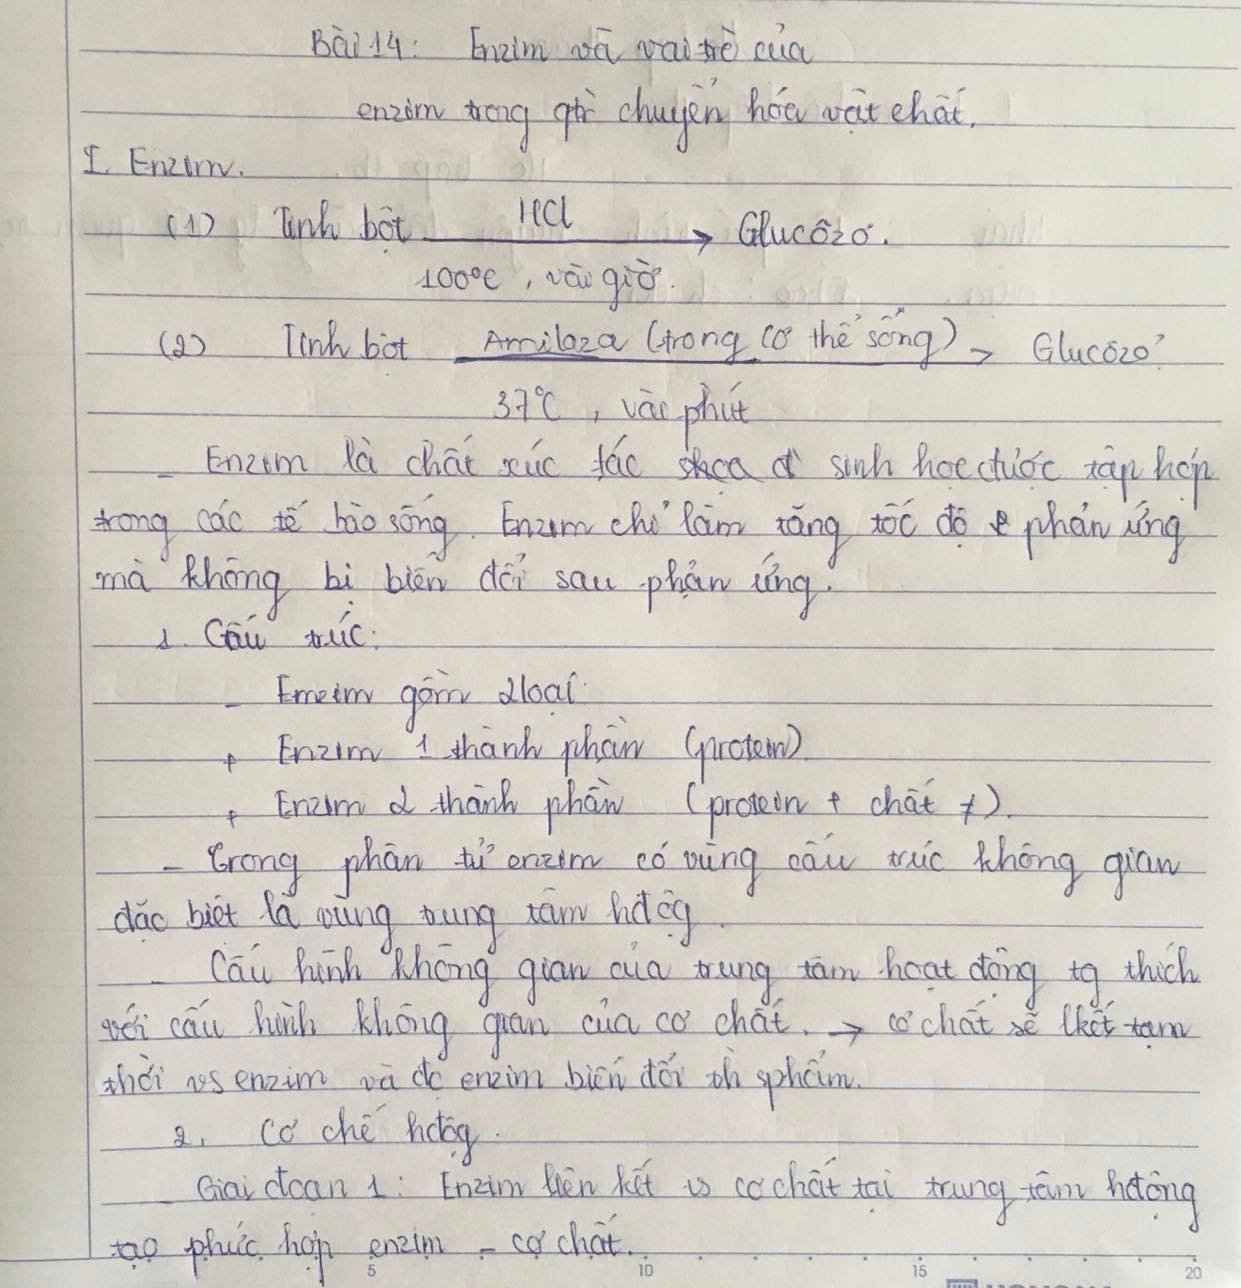 Bài 14: Enzim và vai trò của
enzim trong qtr chuyển hóa vật chất.
I. Enzim.
(1) Tinh bột HCl → Glucôzơ.
100°C, vài giờ.
(2) Tinh bột Amilaza (trong cơ thể sống) → Glucôzơ
37°C, vài phút
- Enzim là chất xúc tác sinh học được tập hợp
trong các tế bào sống. Enzim chỉ làm tăng tốc độ phản ứng
mà không bị biến đổi sau phản ứng.
1. Cấu trúc:
- Emzim gồm 2 loại
+ Enzim 1 thành phần (protein)
+ Enzim 2 thành phần (protein + chất ≠).
- Trong phân tử enzim có vùng cấu trúc không gian
đặc biệt là vùng trung tâm hđộg.
- Cấu hình không gian của trung tâm hoạt động tg thích
với cấu hình không gian của cơ chất. → cơ chất sẽ lkết tạm
thời vs enzim và đc enzim biến đổi th sphẩm.
2. Cơ chế hđộg.
- Giai đoạn 1: Enzim liên kết vs cơ chất tại trung tâm hđộng
tạo phức hợp enzim - cơ chất.
5 10 15 20